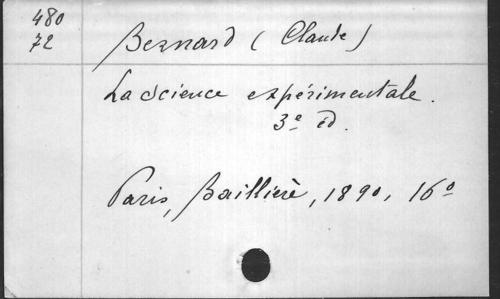 480
72
Bernard (Claude)
La Science expérimentale.
3e éd.
Paris, Baillière, 1890, 16o